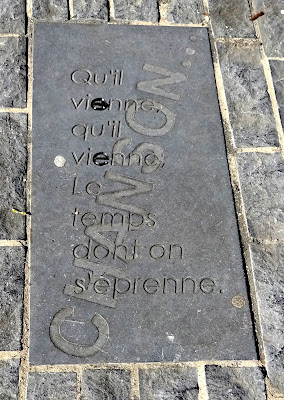 CHANSON...
Qu'il
vienne,
qu'il
vienne,
Le
temps
dont on
s'éprenne.